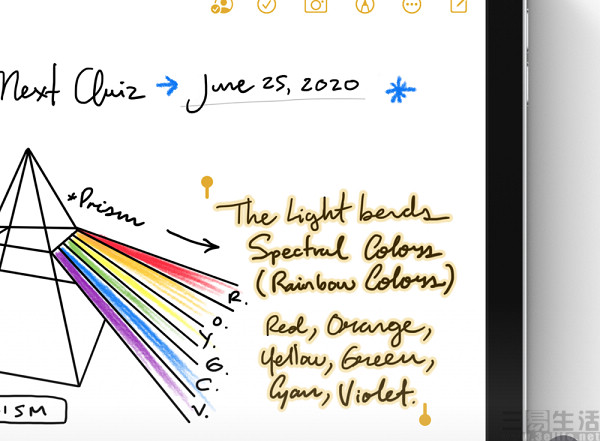 Next Quiz → June 25, 2020 *
*Prism
The Light bends
Spectral Colors
(Rainbow Colors)
Red, Orange,
Yellow, Green,
Cyan, Violet.
R.
O.
Y.
G.
C.
V.
ISM
三易生活